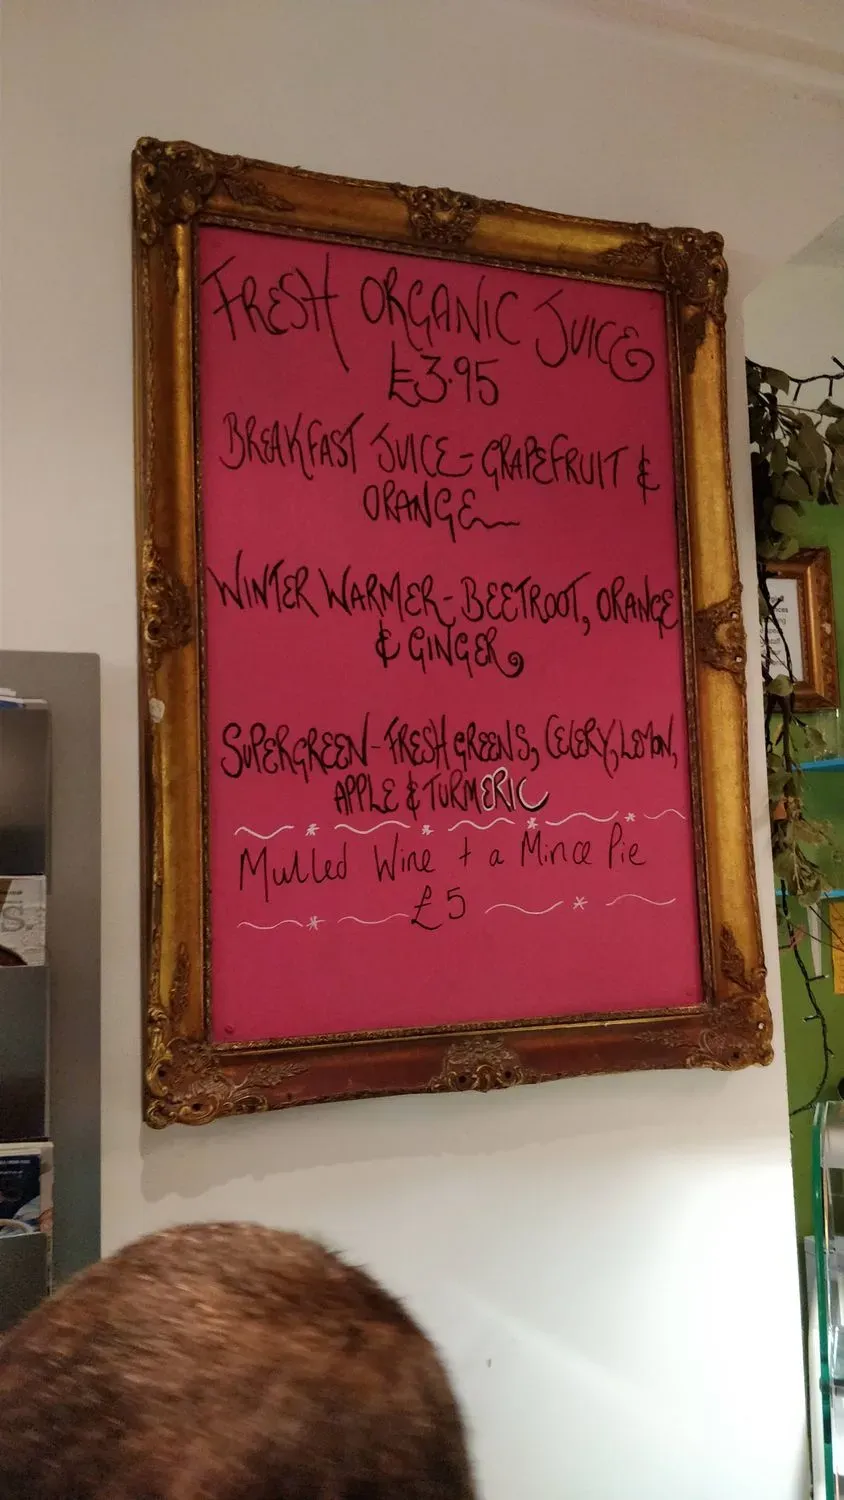 FRESH ORGANIC JUICE
£3.95
BREAKFAST JUICE - GRAPEFRUIT &
ORANGE
WINTER WARMER - BEETROOT, ORANGE
& GINGER
SUPERGREEN - FRESH GREENS, CELERY, LEMON,
APPLE & TURMERIC
Mulled Wine + a Mince Pie
£5
S.